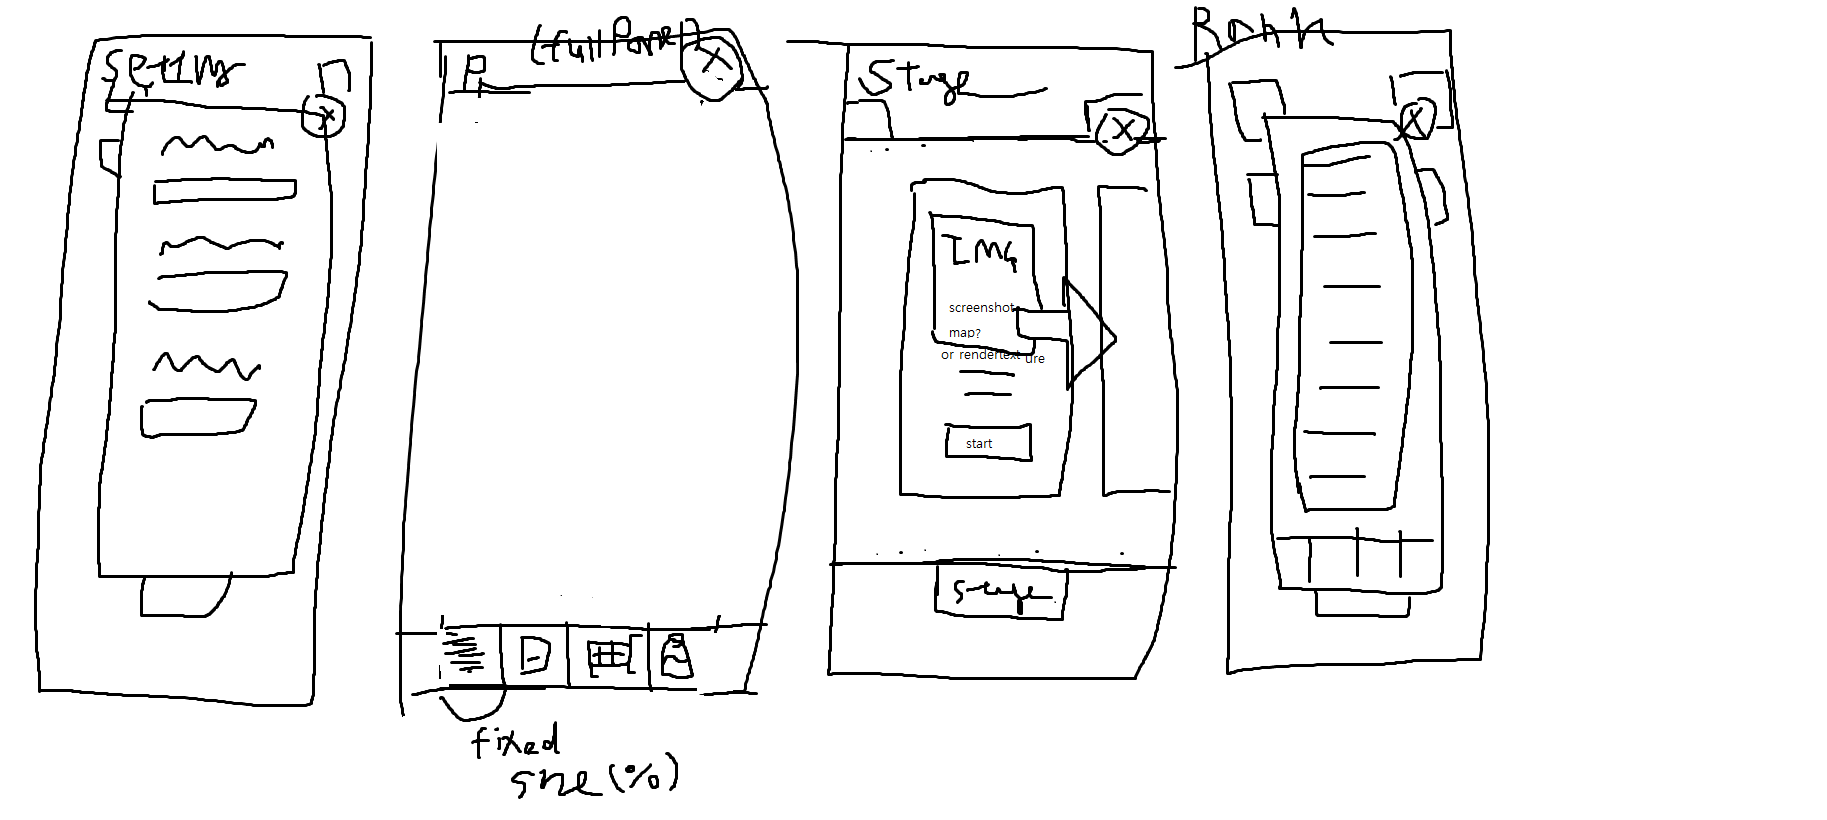 Setting
(full Panel)
P
X
X
fixed
size (%)
Stage
X
IMG
screenshot
map?
or rendertexture
start
Stage
Rank
X